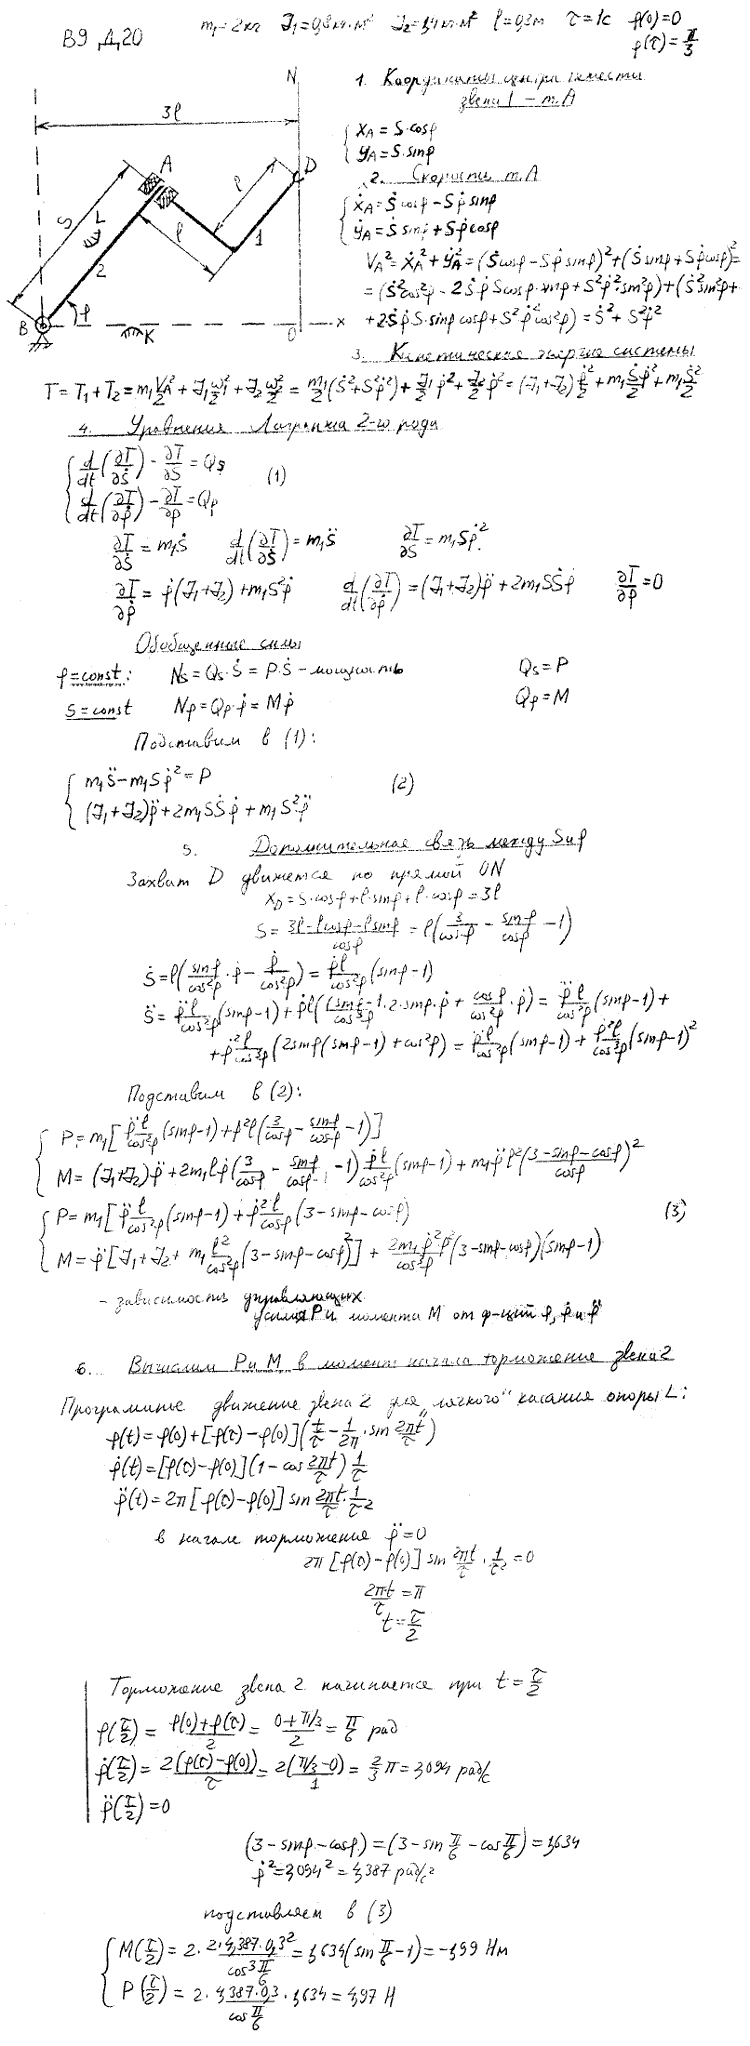 В9, Д,20
m₁=2кг J₁=0,8кг·м² J₂=1,4кг·м² l=0,3м τ=1с φ(0)=0
φ(τ)=π/3
N
3l
A
D
l
S
L
l
2
1
B
φ
K
O
x
1. Координаты центра тяжести
звена 1 – т.А
x_A = S·cosφ
y_A = S·sinφ
2. Скорости т.А
ẋ_A = Ṡcosφ – Sφ̇sinφ
ẏ_A = Ṡsinφ + Sφ̇cosφ
V_A² = ẋ_A² + ẏ_A² = (Ṡcosφ – Sφ̇sinφ)² + (Ṡsinφ + Sφ̇cosφ)² =
= (Ṡ²cos²φ – 2Ṡφ̇Scosφ·sinφ + S²φ̇²sin²φ) + (Ṡ²sin²φ +
+ 2Ṡφ̇S·sinφcosφ + S²φ̇²cos²φ) = Ṡ² + S²φ̇²
3. Кинетическая энергия системы
T = T₁ + T₂ = m₁V_A²/2 + J₁ω₁²/2 + J₂ω₂²/2 = m₁/2(Ṡ² + S²φ̇²) + J₁/2 φ̇² + J₂/2 φ̇² = (J₁+J₂)φ̇²/2 + m₁S²φ̇²/2 + m₁Ṡ²/2
4. Уравнения Лагранжа 2-го рода
d/dt(∂T/∂Ṡ) – ∂T/∂S = Q_S (1)
d/dt(∂T/∂φ̇) – ∂T/∂φ = Q_φ
∂T/∂Ṡ = m₁Ṡ d/dt(∂T/∂Ṡ) = m₁S̈ ∂T/∂S = m₁Sφ̇²
∂T/∂φ̇ = φ̇(J₁+J₂) + m₁S²φ̇ d/dt(∂T/∂φ̇) = (J₁+J₂)φ̈ + 2m₁SṠφ̇ ∂T/∂φ = 0
Обобщенные силы
φ=const: N_S = Q_S·Ṡ = P·Ṡ – мощность Q_S = P
S=const N_φ = Q_φ·φ̇ = Mφ̇ Q_φ = M
Подставим в (1):
m₁S̈ – m₁Sφ̇² = P (2)
(J₁+J₂)φ̈ + 2m₁SṠφ̇ + m₁S²φ̈
5. Дополнительная связь между S и φ
Захват D движется по прямой ON
x_D = S·cosφ + l·sinφ + l·cosφ = 3l
S = (3l – lcosφ – lsinφ)/cosφ = l(3/cosφ – sinφ/cosφ – 1)
Ṡ = l(sinφ/cos²φ·φ̇ – φ̇/cos²φ) = φ̇l/cos²φ(sinφ–1)
S̈ = φ̈l/cos²φ(sinφ–1) + φ̇l((sinφ–1)/cos³φ·2·sinφ·φ̇ + cosφ/cos²φ·φ̇) = φ̈l/cos²φ(sinφ–1) +
+ φ̇²l/cos³φ(2sinφ(sinφ–1) + cos²φ) = φ̈l/cos²φ(sinφ–1) + φ̇²l/cos³φ(sinφ–1)²
Подставим в (2):
P = m₁[φ̈l/cos²φ(sinφ–1) + φ̇²l(3/cosφ – sinφ/cosφ – 1)]
M = (J₁+J₂)φ̈ + 2m₁lφ̇(3/cosφ – sinφ/cosφ – 1)φ̇l/cos²φ(sinφ–1) + m₁φ̈l²((3–sinφ–cosφ)/cosφ)²
P = m₁[φ̈l/cos²φ(sinφ–1) + φ̇²l/cosφ(3–sinφ–cosφ) (3)
M = φ̈[J₁+J₂+m₁l²/cos²φ(3–sinφ–cosφ)²] + 2m₁φ̇²l²/cos³φ(3–sinφ–cosφ)(sinφ–1)
– зависимость управляющих
усилия P и момента M от ф-ций φ, φ̇ и φ̈
6. Вычислим P и M в момент начала торможение звена 2
Программные движение звена 2 для "мягкого" касания опоры L:
φ(t) = φ(0) + [φ(τ) – φ(0)](t/τ – 1/2π·sin 2πt/τ)
φ̇(t) = [φ(τ) – φ(0)](1 – cos 2πt/τ)1/τ
φ̈(t) = 2π[φ(τ) – φ(0)] sin 2πt/τ·1/τ²
в начале торможения φ̈=0
2π[φ(τ) – φ(0)] sin 2πt/τ·1/τ² = 0
2πt/τ = π
t = τ/2
Торможение звена 2 начинается при t = τ/2
φ(τ/2) = (φ(0)+φ(τ))/2 = (0+π/3)/2 = π/6 рад
φ̇(τ/2) = 2(φ(τ)–φ(0))/τ = 2(π/3–0)/1 = 2/3 π = 2,094 рад/с
φ̈(τ/2) = 0
(3–sinφ–cosφ) = (3–sin π/6 – cos π/6) = 1,634
φ̇² = 2,094² = 4,387 рад/с²
подставляем в (3)
M(τ/2) = 2·2·4,387·0,3²/cos³π/6 = 1,634(sin π/6 – 1) = –1,99 Нм
P(τ/2) = 2·4,387·0,3/cos π/6·1,634 = 4,97 Н